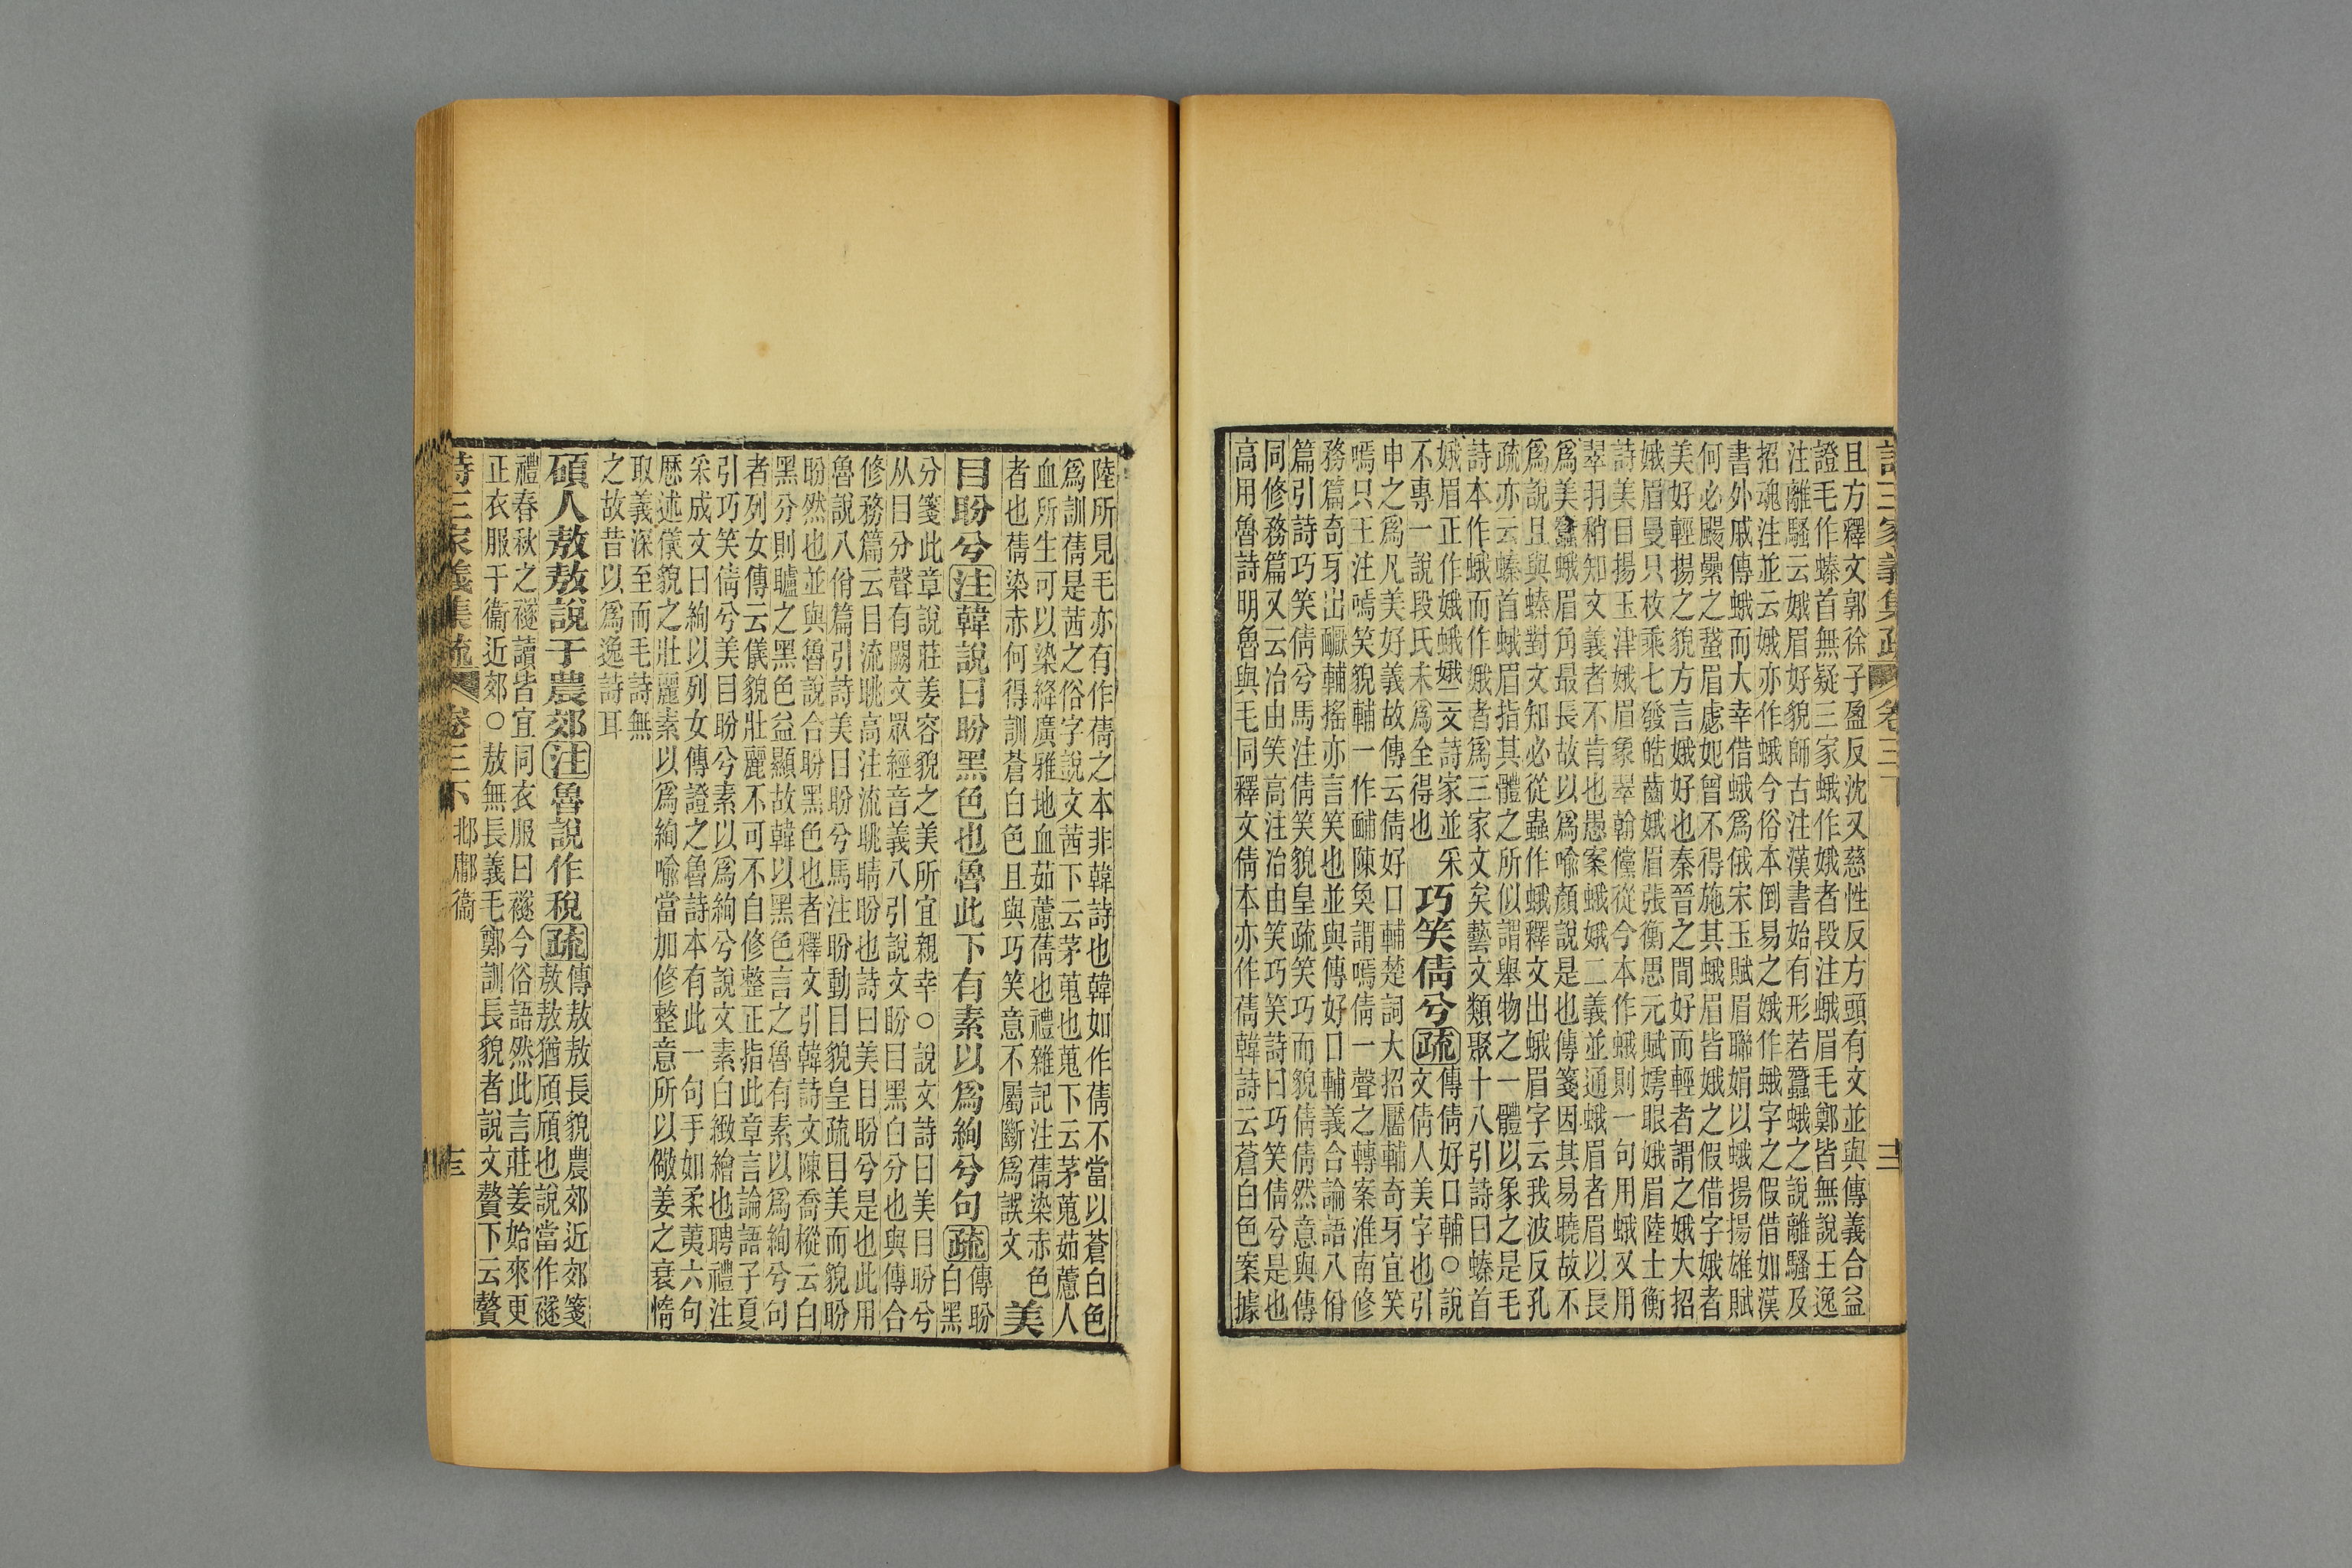 詩三家義集疏 卷三下 三
且方釋文郭徐子盈反沈又慈性反方頭有文並與傳義合益
證毛作螓首無疑三家蛾作娥者段注蛾眉毛鄭皆無說王逸
注離騷云娥眉好貌師古注漢書始有形若蠶蛾之說離騷及
招魂注並云娥亦作蛾今俗本倒易之娥作蛾字之假借如漢
書外戚傳蛾而大幸借蛾爲俄宋玉賦眉聯娟以蛾揚揚雄賦
何必颺纍之蛾眉慮妃曾不得施其蛾眉皆娥之假借字娥者
美好輕揚之貌方言娥好也秦晉之間好而輕者謂之娥大招
娥眉曼只枚乘七發皓齒娥眉張衡思元賦嫮眼娥眉陸士衡
詩美目揚玉津娥眉象翠翰儻從今本作蛾則一句用蛾又用
翠羽稍知文義者不肯也愚案蛾娥二義並通蛾眉者眉以長
爲美蠶蛾眉角最長故以爲喻顏說是也傳箋因其易曉故不
爲說且與螓對文知必從蟲作蛾釋文出蛾眉字云我波反孔
疏亦云螓首蛾眉指其體之所似謂舉物之一體以象之是毛
詩本作蛾而作娥者爲三家文矣藝文類聚十八引詩曰螓首
娥眉正作娥蛾娥二文詩家並采
不專一說段氏未爲全得也
巧笑倩兮疏傳倩好口輔○說
文倩人美字也引
申之爲凡美好義故傳云倩好口輔楚詞大招靨輔奇牙宜笑
嘕只王注嘕笑貌輔一作酺陳奐謂嘕倩一聲之轉案淮南修
務篇奇牙出𪗙輔搖亦言笑也並與傳好口輔義合論語八佾
篇引詩巧笑倩兮馬注倩笑貌皇疏笑巧而貌倩倩然意與傳
同修務篇又云冶由笑高注冶由笑巧笑詩曰巧笑倩兮是也
高用魯詩明魯與毛同釋文倩本亦作蒨韓詩云蒼白色案據
陸所見毛亦有作蒨之本非韓詩也韓如作蒨不當以蒼白色
爲訓蒨是茜之俗字說文茜下云茅蒐也蒐下云茅蒐茹藘人
血所生可以染絳廣雅地血茹藘蒨也禮雜記注蒨染赤色
者也蒨染赤何得訓蒼白色且與巧笑意不屬斷爲誤文
美
目盼兮注韓說曰盼黑色也魯此下有素以爲絢兮句疏傳盼
白黑
分箋此章說莊姜容貌之美所宜親幸○說文詩曰美目盼兮
从目分聲有闕文眾經音義八引說文盼曰黑白分也與傳合
修務篇云目流眺高注流眺睛盼也詩曰美目盼兮是也此用
魯說八佾篇引詩美目盼兮馬注盼動目貌皇疏目美而貌盼
盼然也並與魯說合盼黑色也者釋文引韓詩文陳喬樅云白
黑分則驢之黑色益顯故韓以黑色言之魯有素以爲絢兮句
者列女傳云儀貌壯麗不可不自修整正指此章言論語子夏
引巧笑倩兮美目盼兮素以爲絢兮說文素白緻繒也聘禮注
采成文曰絢以列女傳證之魯詩本有此一句手如柔荑六句
歷述儀貌之壯麗素以爲絢喻當加修整意所以儆姜之衰惰
取義深至而毛詩無
之故昔以爲逸詩耳
碩人敖敖說于農郊注魯說作稅疏傳敖敖長貌農郊近郊箋
敖敖猶頎頎也說當作襚
禮春秋之襚讀皆宜同衣服曰襚今俗語然此言莊姜始來更
正衣服于衞近郊○敖無長義毛鄭訓長貌者說文贅下云贅
詩三家義集疏 卷三下 邶鄘衞